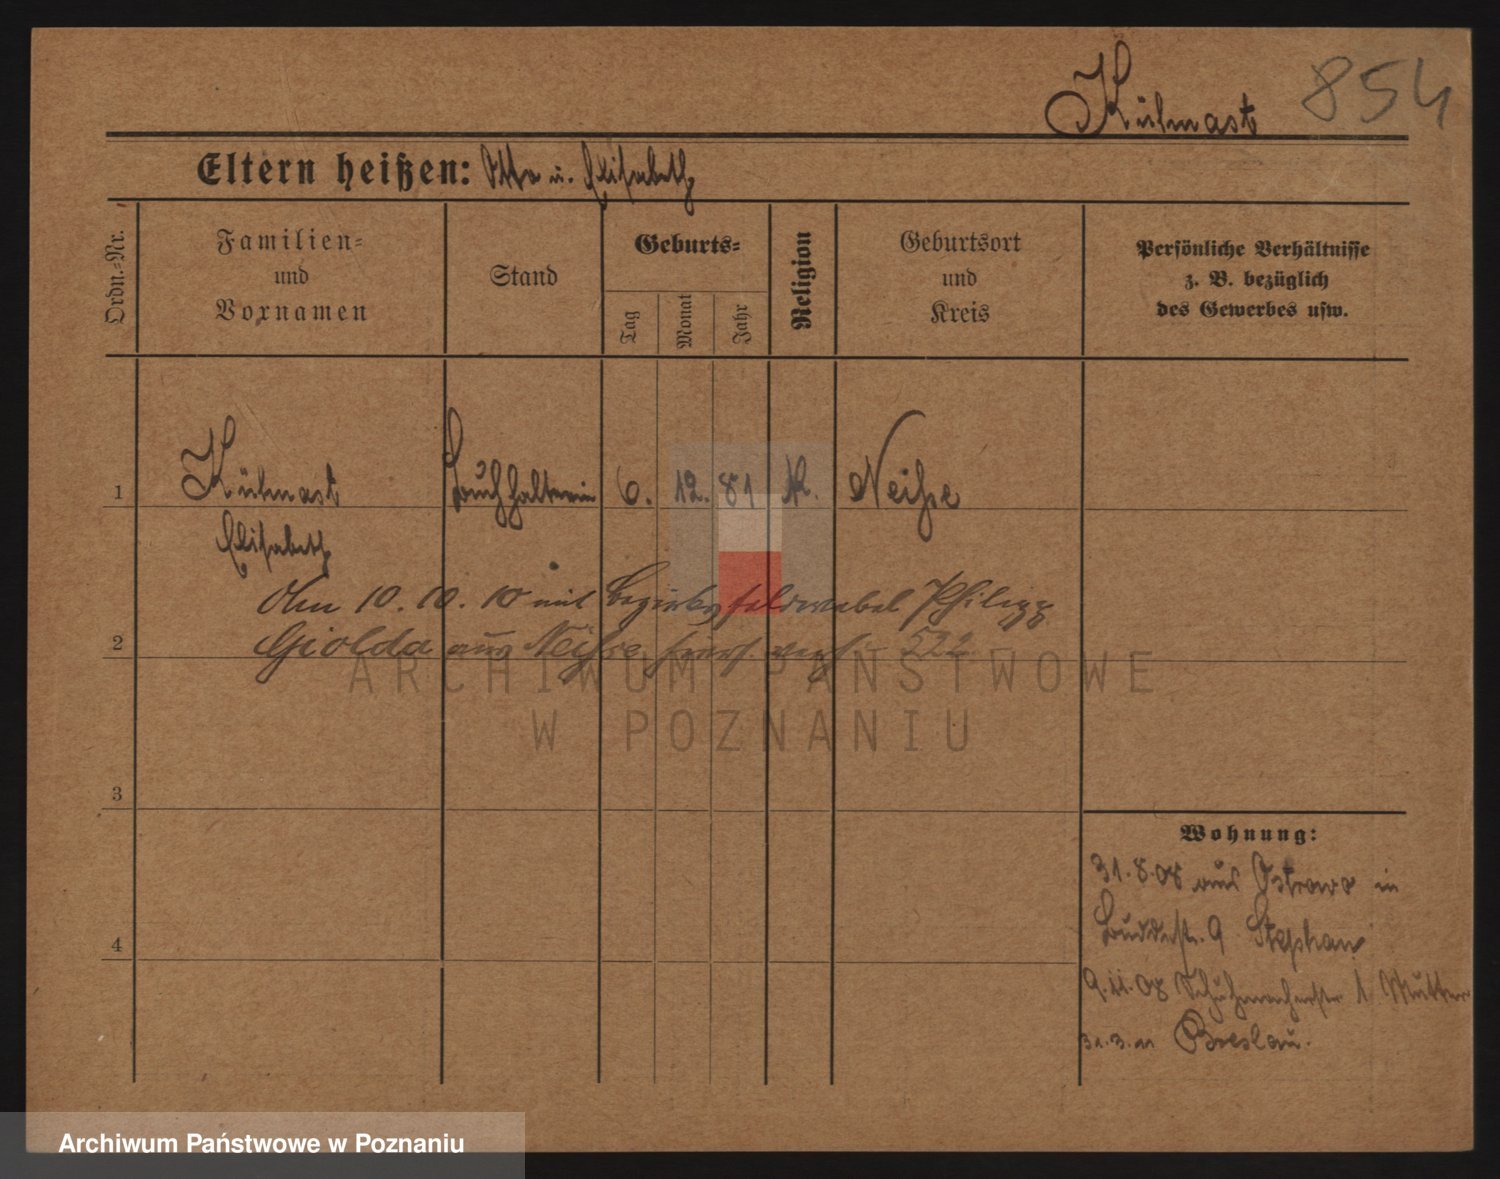 Kühnast 854
Eltern heißen: Otto u. Elisabeth
Ordn.=Nr.
Familien=
und
Vornamen
Stand
Geburts=
Tag
Monat
Jahr
Religion
Geburtsort
und
Kreis
Persönliche Verhältnisse
z. B. bezüglich
des Gewerbes usw.
1 Kühnast Buchhalterin 6. 12. 81 K. Neiße
Elisabeth
Am 10. 10. 10 mit Bezirksfeldwebel Philipp
2 Giolda aus Neisse 522
3
4
Wohnung:
31.8.08 aus Ostrowo in
Buddestr. 9 Stephan
9.11.08 Schuhmacherstr 1 Mutter
31.3.11 Breslau.
ARCHIWUM PAŃSTWOWE
W POZNANIU
Archiwum Państwowe w Poznaniu